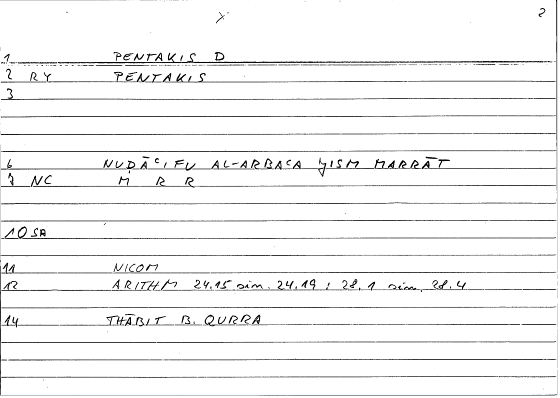 2
1 PENTAKIS D
2 RY PENTAKIS
3
6 NUḌĀʿIFU AL-ARBAʿA ḪISM MARRĀT
7 NC M R R
10 SA
11 NICOM
12 ARITHM 24,15 sim. 24,19 ; 28,1 sim. 28,4
14 THĀBIT B. QURRA